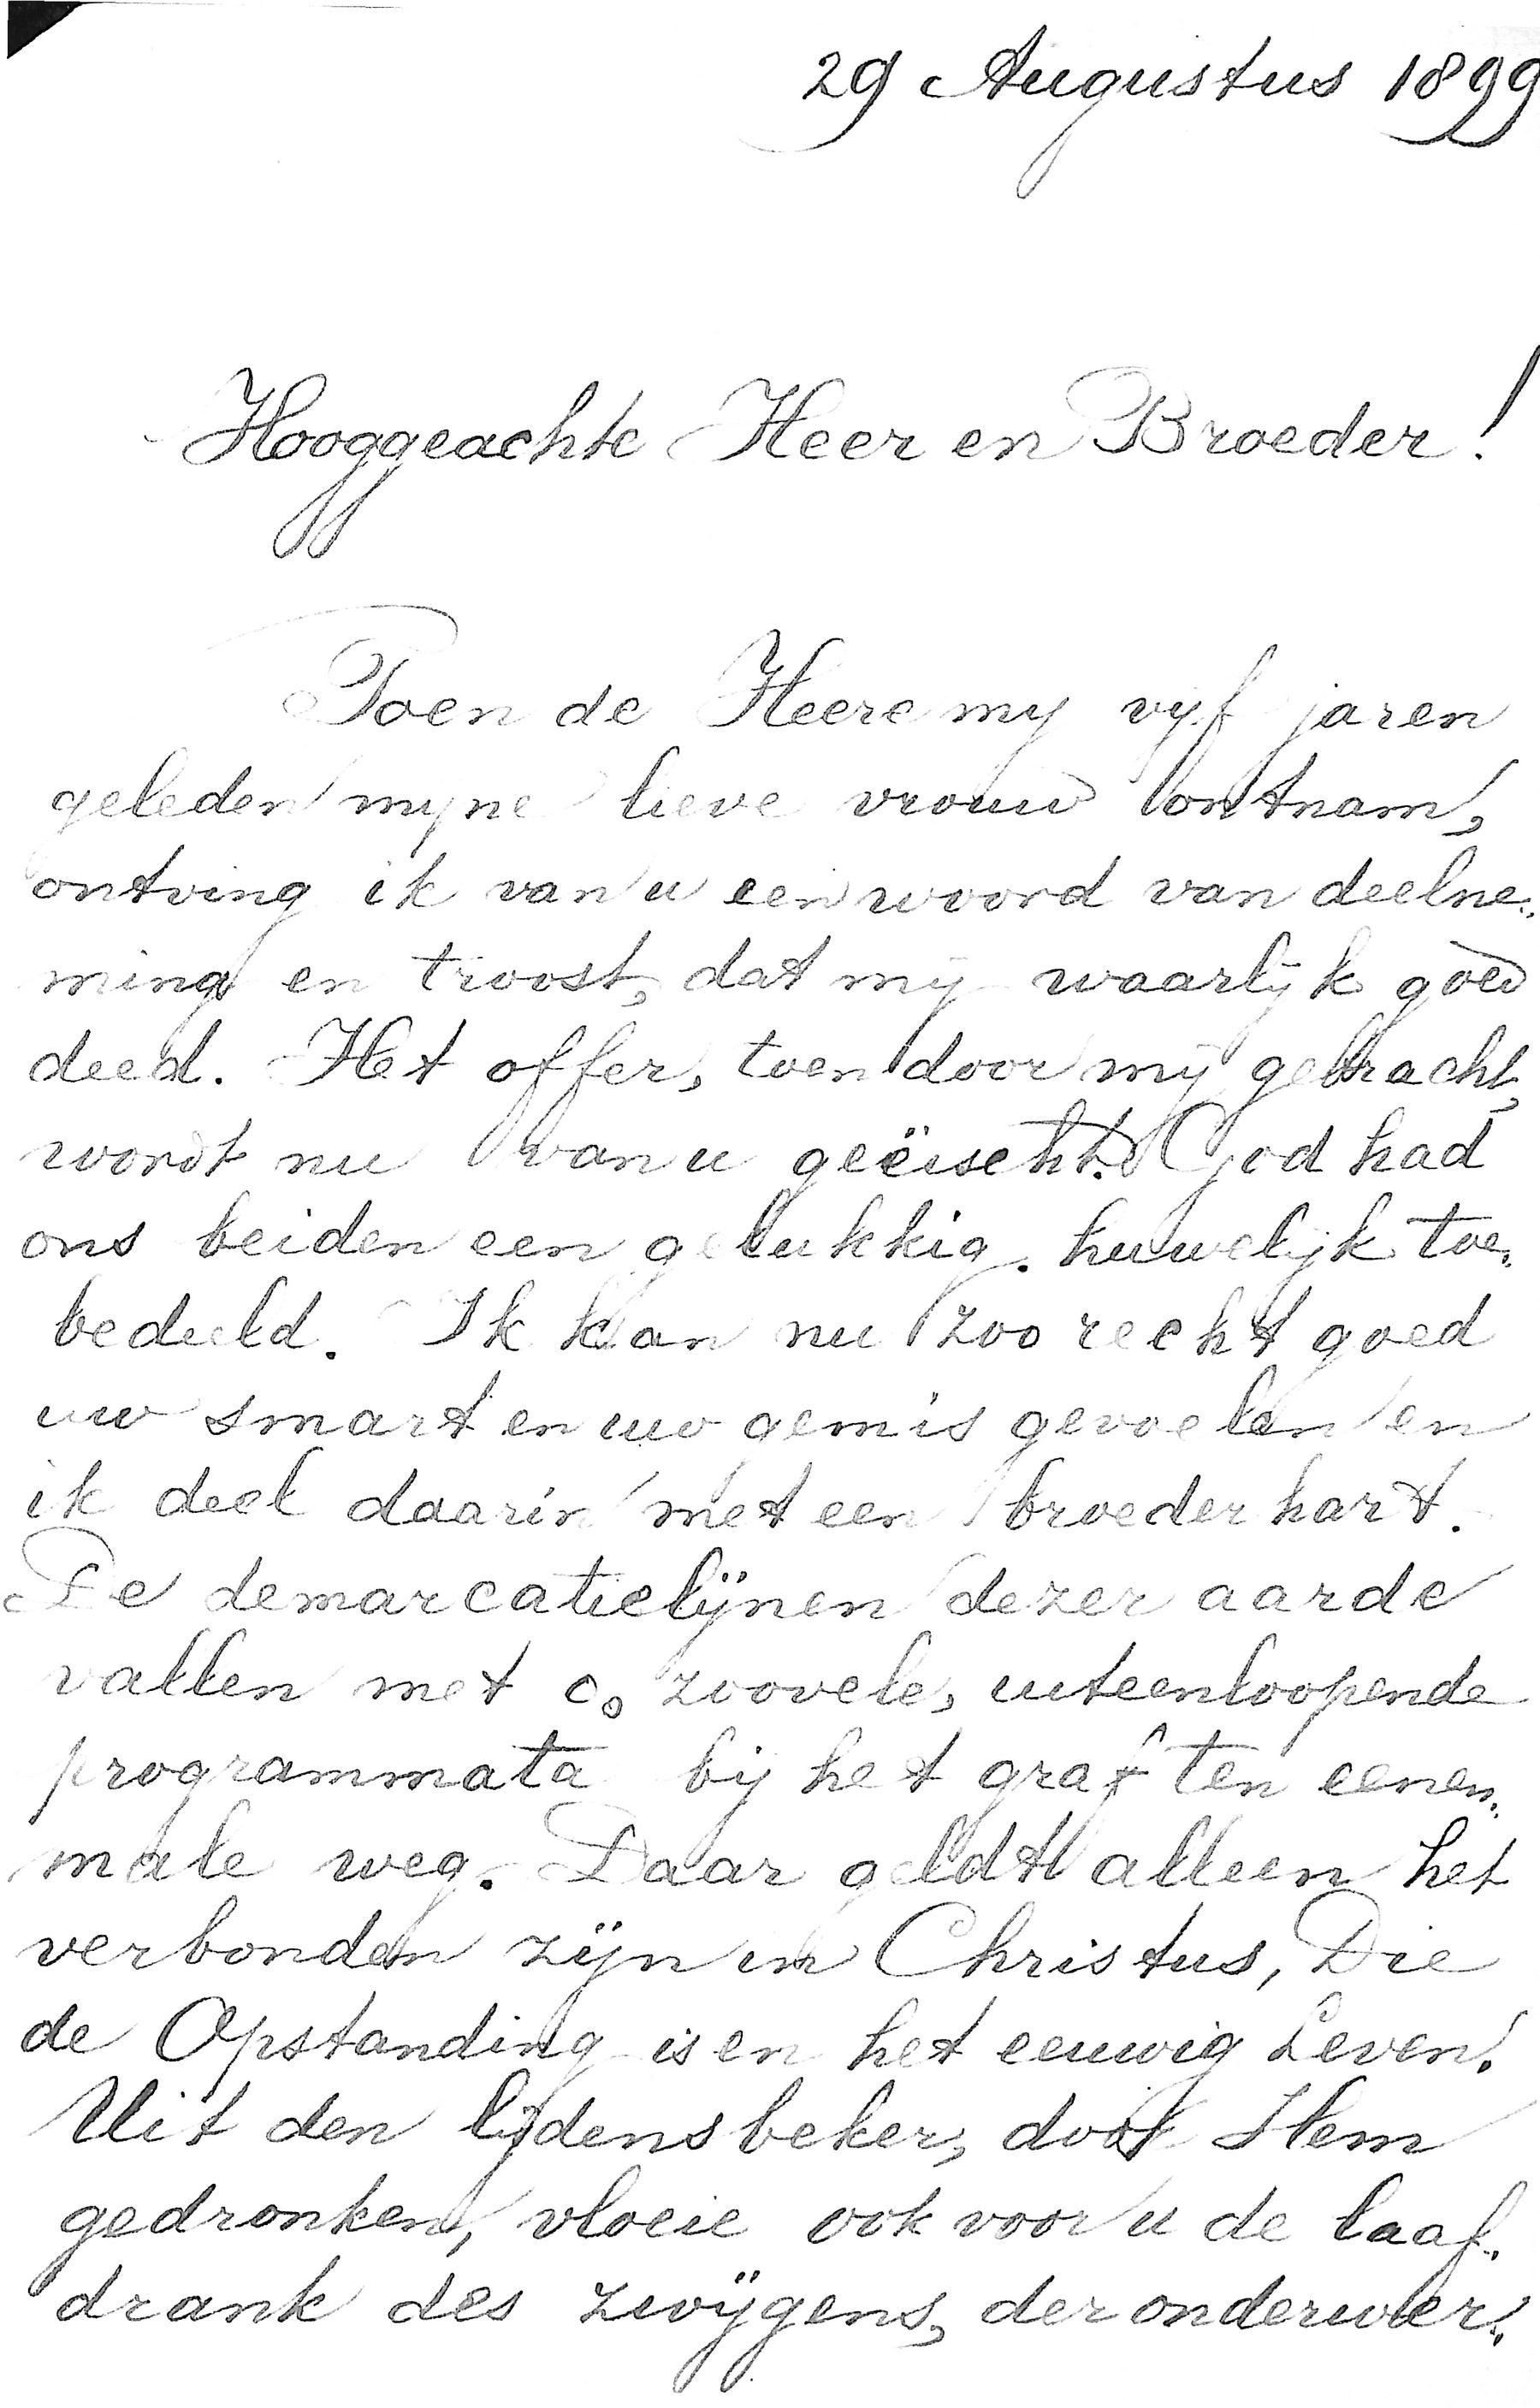 29 Augustus 1899
Hooggeachte Heer en Broeder!
Toen de Heere my vyf jaren
geleden myne lieve vrouw ontnam,
ontving ik van u een woord van deelne-
ming en troost, dat mij waarlijk goed
deed. Het offer, toen door mij gebracht,
wordt nu van u geëischt. God had
ons beiden een gelukkig huwelijk toe-
bedeeld. Ik kan nu zoo recht goed
uw smart en uw gemis gevoelen en
ik deel daarin met een broederhart.
De demarcatielijnen dezer aarde
vallen met zoovele, uiteenloopende
programmata bij het graf ten eenen-
male weg. Daar geldt alleen het
verbonden zijn in Christus, Die
de Opstanding is en het eeuwig Leven.
Uit den lijdensbeker, door Hem
gedronken, vloeie ook voor u de laaf-
drank des zwijgens, der onderwer-